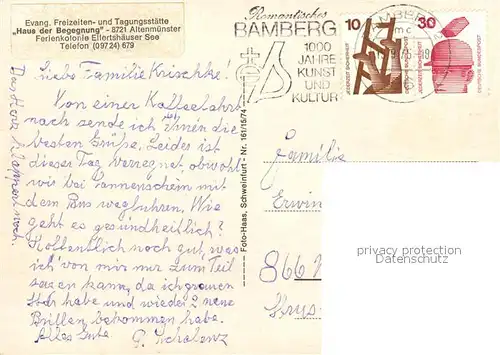 Evang. Freizeiten- und Tagungsstätte
„Haus der Begegnung" - 8721 Altenmünster
Ferienkolonie Ellertshäuser See
Telefon (09724) 679
Romantisches
BAMBERG
1000
JAHRE
KUNST
UND
KULTUR
BAMBERG
mc
10
30
JEDERZEIT SICHERHEIT
DEUTSCHE BUNDESPOST
JEDERZEIT SICHERHEIT
DEUTSCHE BUNDESPOST
Liebe Familie Krischke!
Von einer Kaffeefahrt
nach sende ich Ihnen die
besten Grüße. Leider ist
dieser Tag verregnet, obwohl
wir bei Sonnenschein mit
dem Bus wegfuhren. Wie
geht es gesundheitlich?
Hoffentlich noch gut, was
ich von mir nur zum Teil
sagen kann, da ich grauen
Star habe und wieder neue
Brillen bekommen habe.
Alles Gute
Foto-Haas, Schweinfurt - Nr. 161/15/74
Familie
Erwin
866
privacy protection
Datenschutz